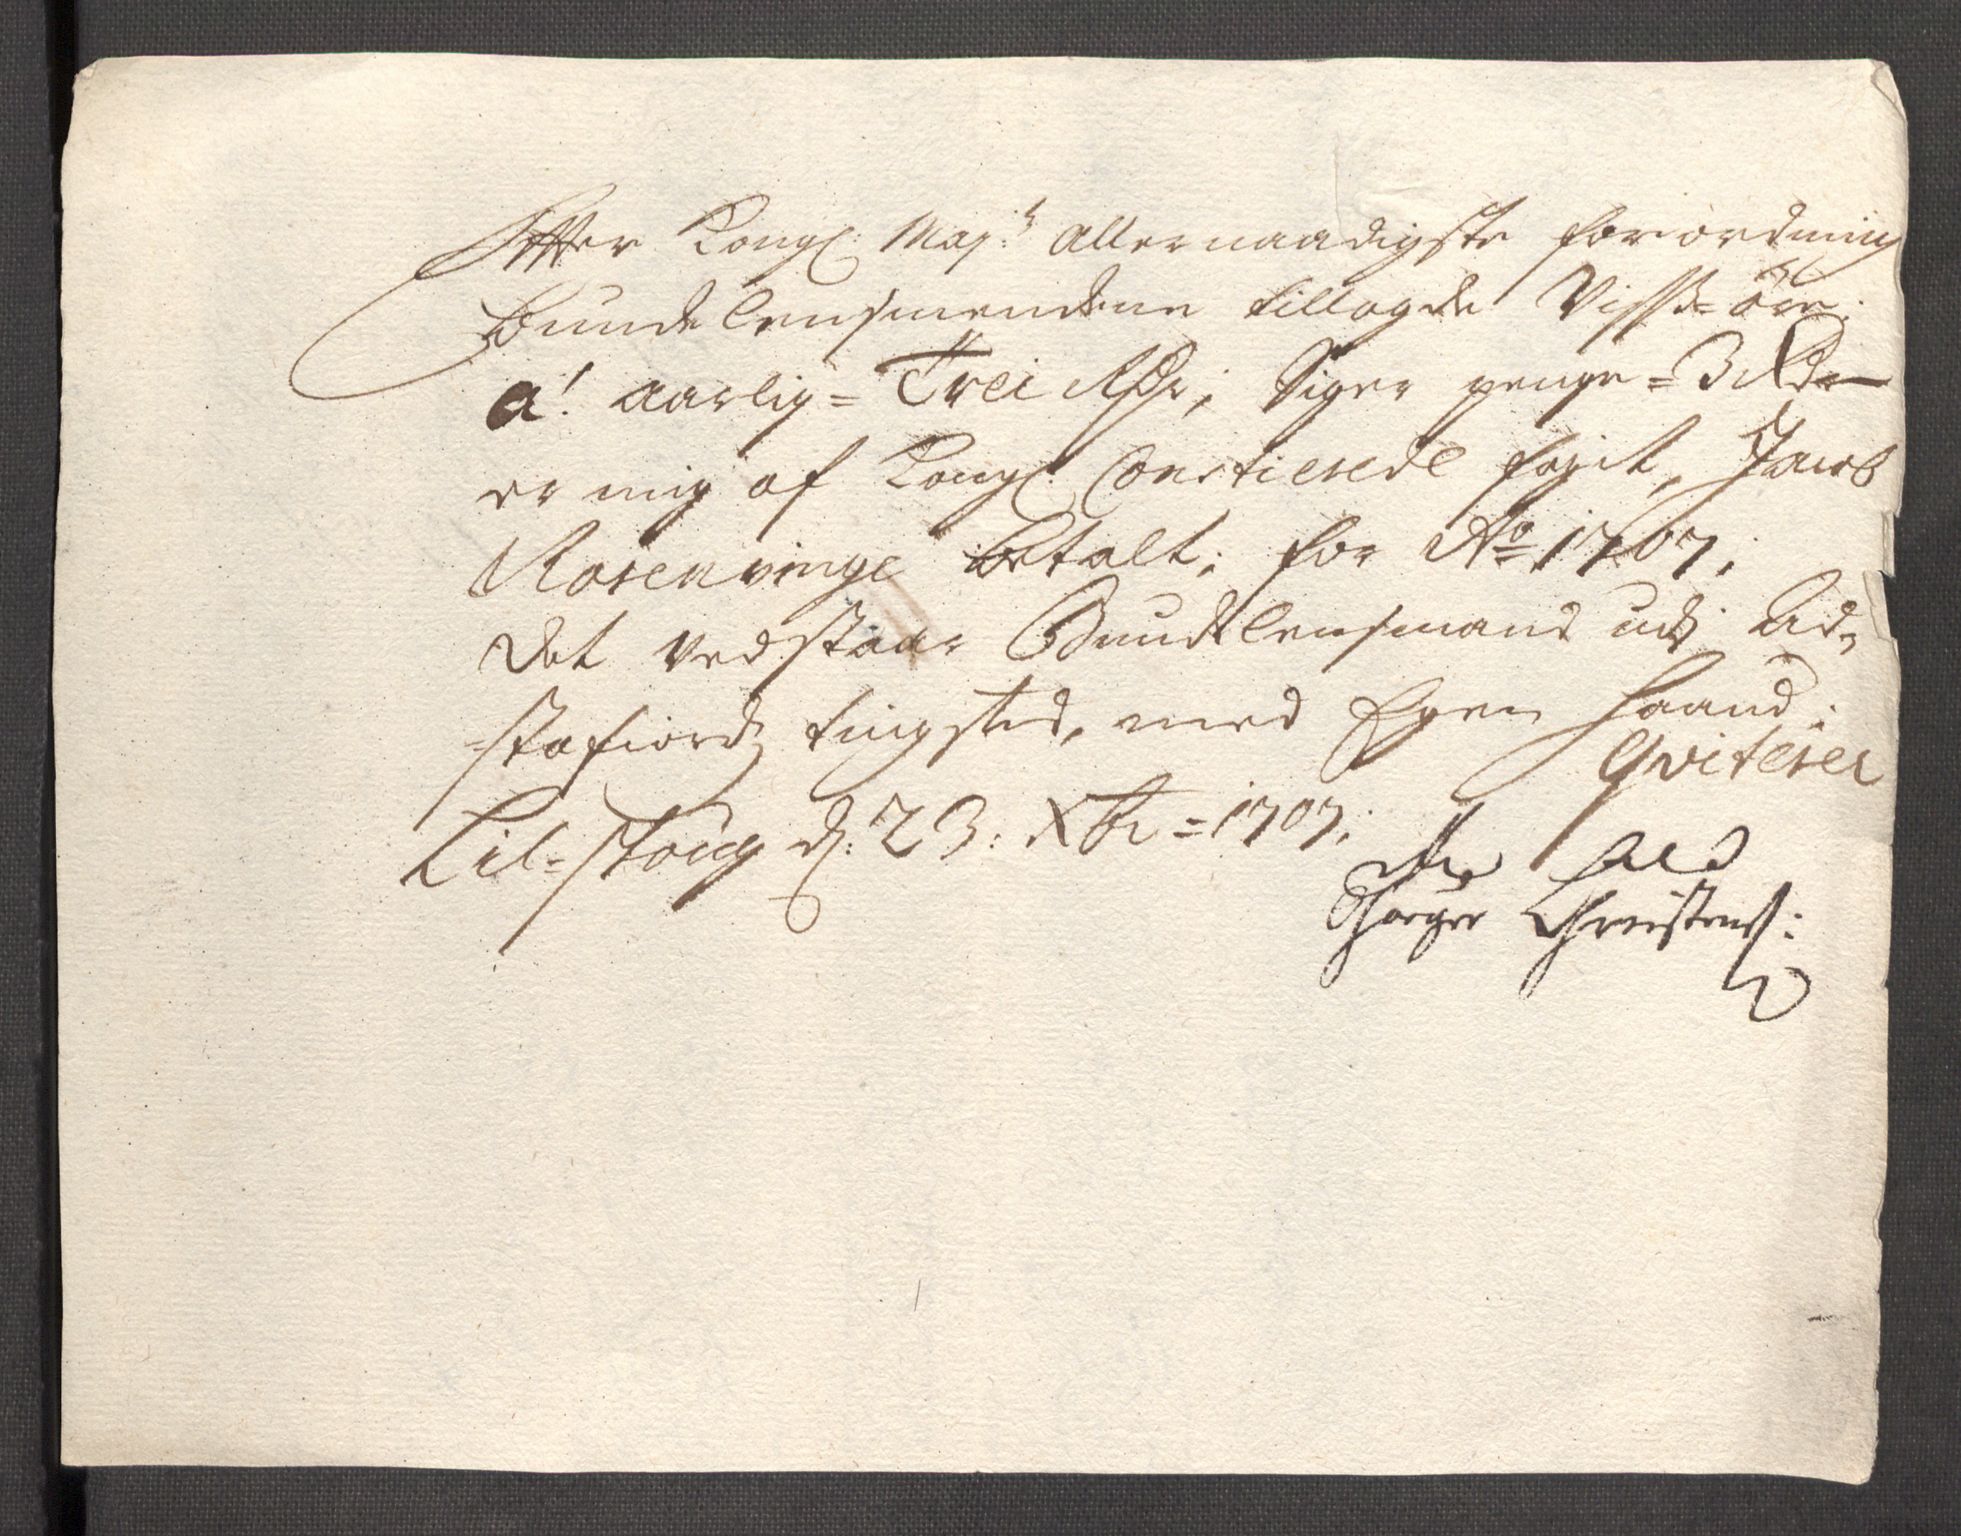 Effter Kongl: Maj:ts allernaadigste forordning
bunde lensmendene tillagde Visse øre
a! aarlig = Trei Rdr, siger penge = 3 Rdr
er mig af Kongl: Constierede fogit, Jacob
Rosenvinge betalt; for Ao 1707;
Det vedstaar Bundelensmand udj
-stafiords tingsted, med Egen Haand;
Qviterer
d: 23: Xbr = 1707;
Christens: